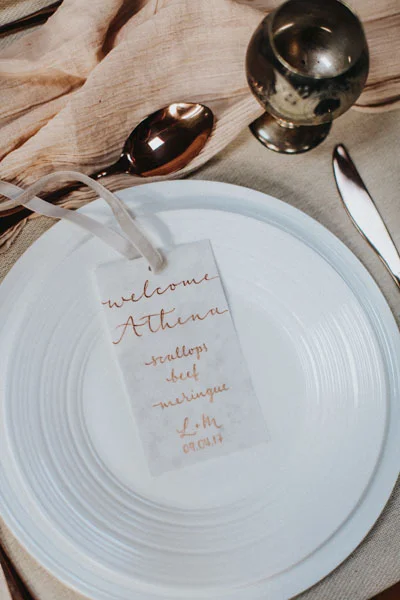 welcome
Athena
scallops
beef
meringue
L + M
09.04.17